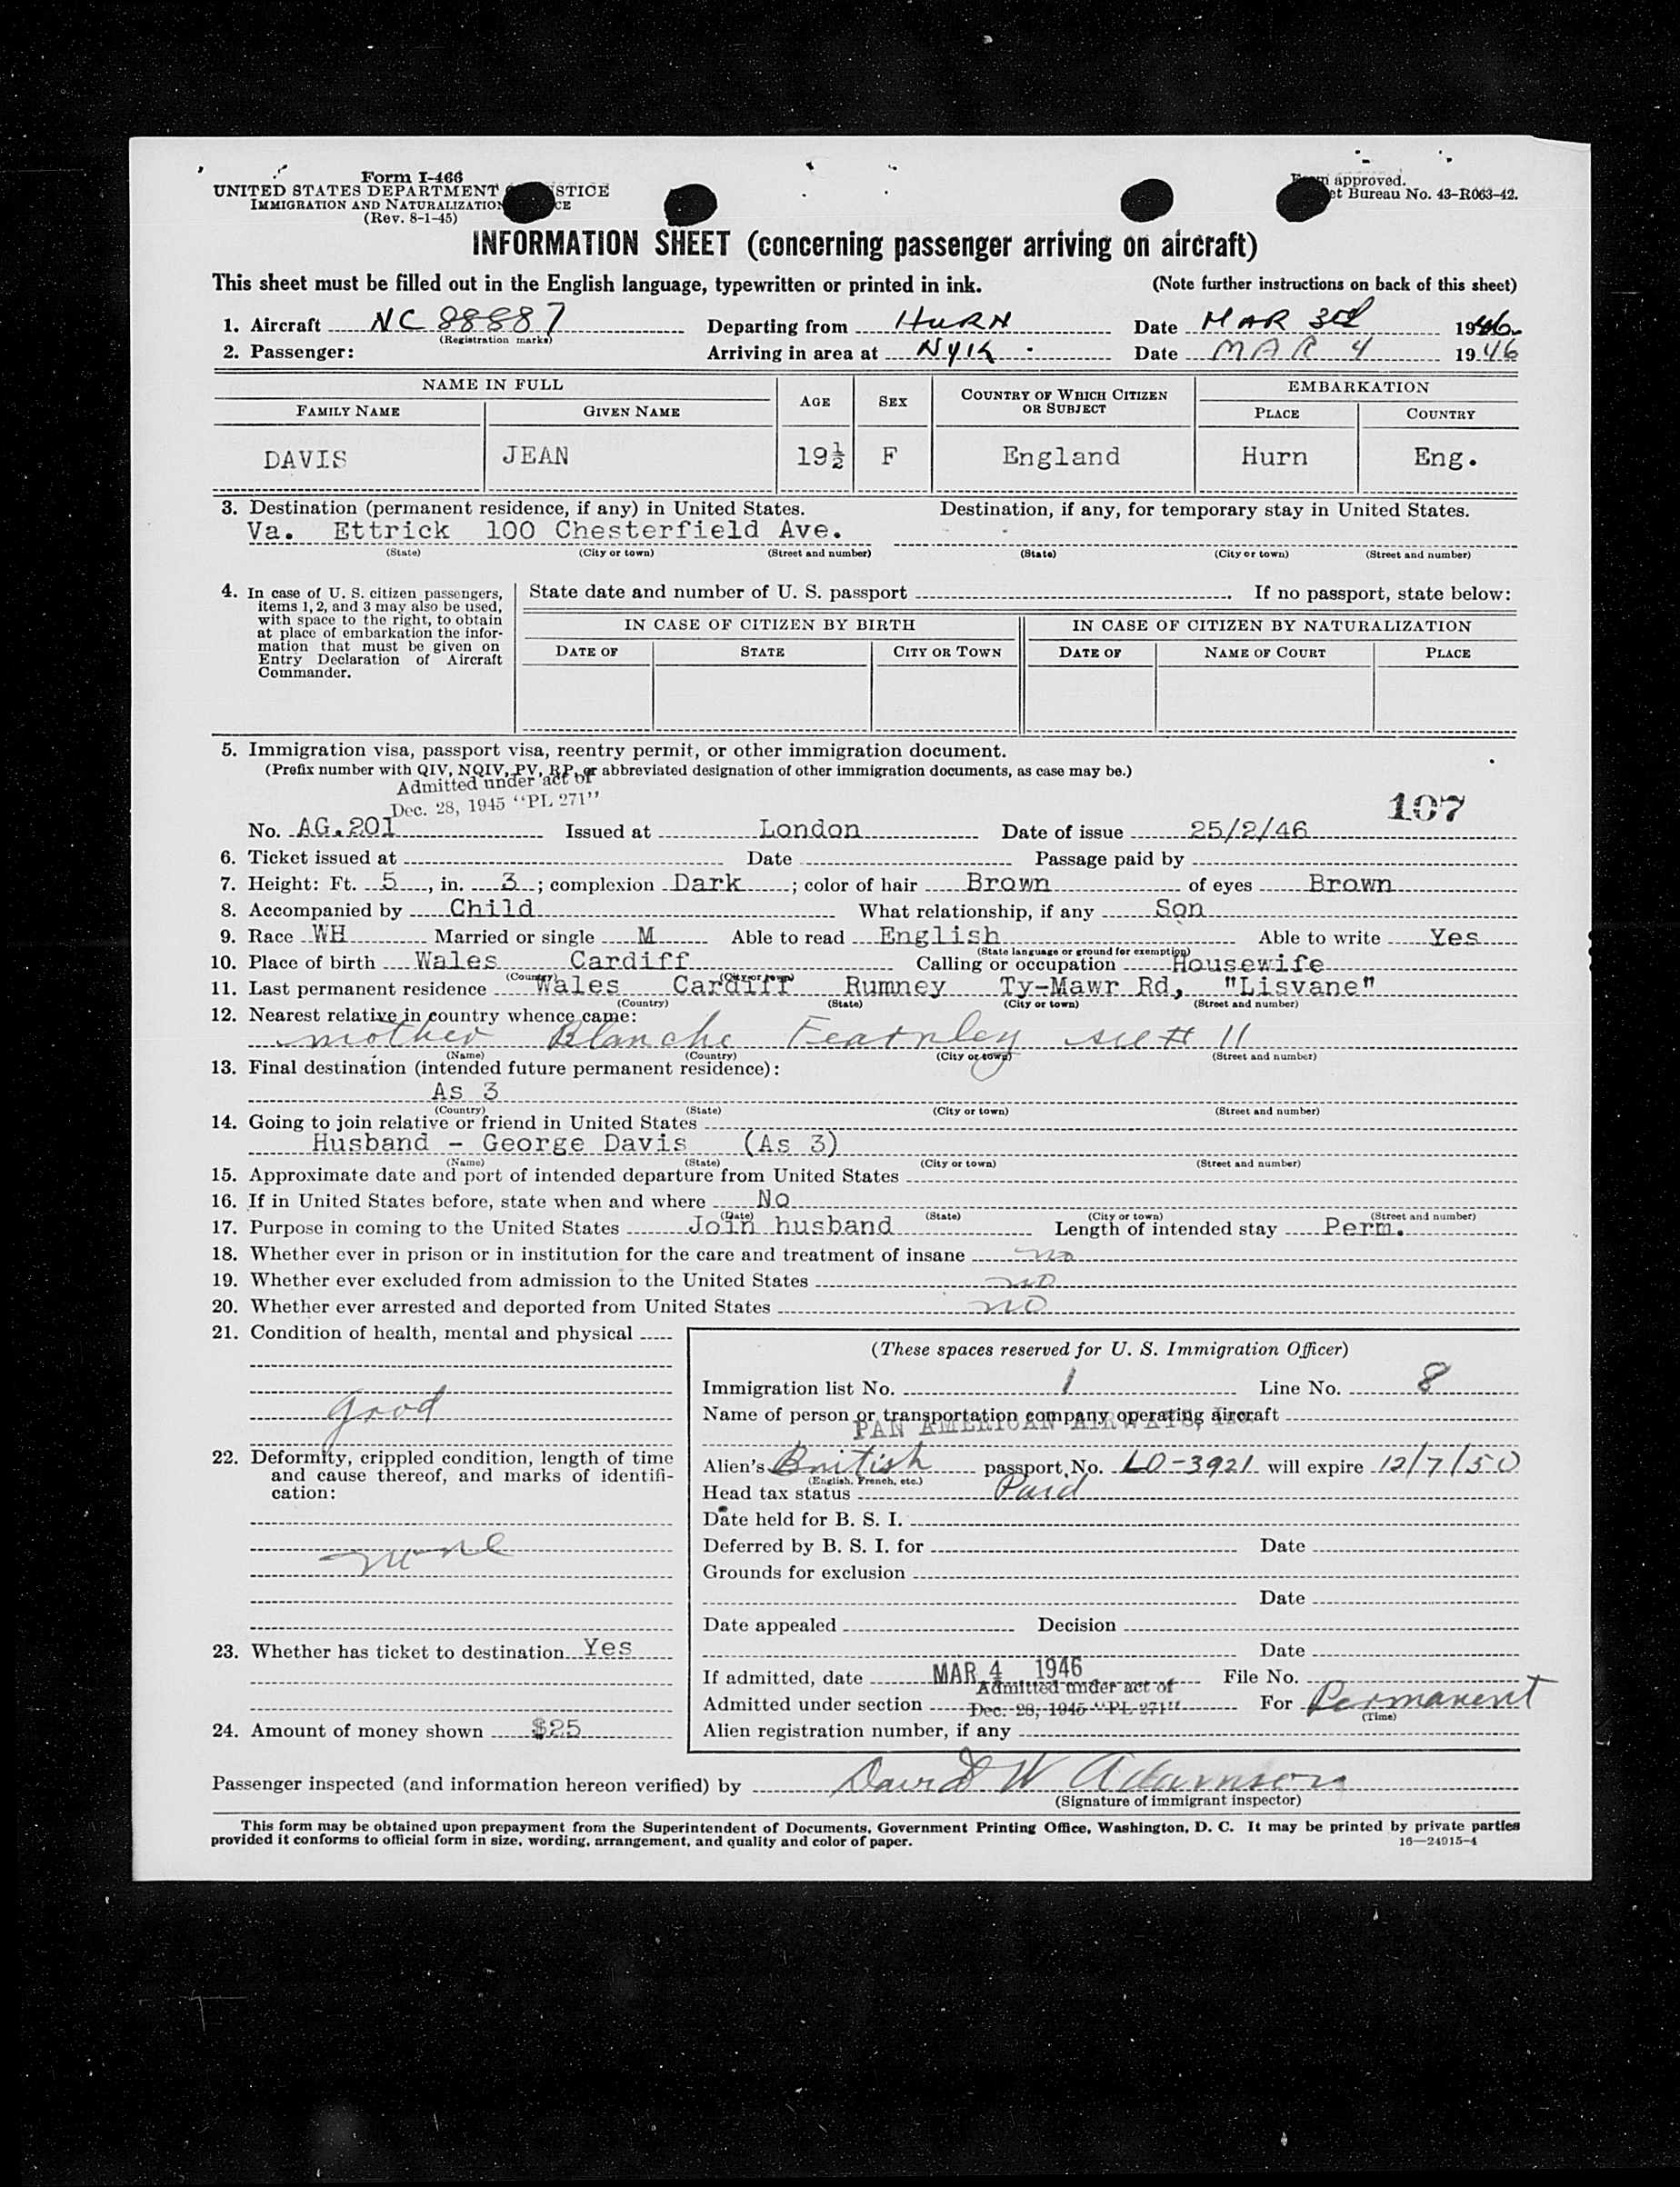 Form I-466
UNITED STATES DEPARTMENT STICE
IMMIGRATION AND NATURALIZATION CE
(Rev. 8-1-45)
Form approved.
et Bureau No. 43-R063-42.
INFORMATION SHEET (concerning passenger arriving on aircraft)
This sheet must be filled out in the English language, typewritten or printed in ink. (Note further instructions on back of this sheet)
1. Aircraft NC 88887 Departing from HURN Date MAR 3rd 1946
(Registration marks)
2. Passenger: Arriving in area at NYK Date MAR 4 1946
NAME IN FULL AGE SEX COUNTRY OF WHICH CITIZEN OR SUBJECT EMBARKATION
FAMILY NAME GIVEN NAME PLACE COUNTRY
DAVIS JEAN 19½ F England Hurn Eng.
3. Destination (permanent residence, if any) in United States. Destination, if any, for temporary stay in United States.
Va. Ettrick 100 Chesterfield Ave.
(State) (City or town) (Street and number) (State) (City or town) (Street and number)
4. In case of U. S. citizen passengers,
items 1, 2, and 3 may also be used,
with space to the right, to obtain
at place of embarkation the infor-
mation that must be given on
Entry Declaration of Aircraft
Commander.
State date and number of U. S. passport . If no passport, state below:
IN CASE OF CITIZEN BY BIRTH IN CASE OF CITIZEN BY NATURALIZATION
DATE OF STATE CITY OR TOWN DATE OF NAME OF COURT PLACE
5. Immigration visa, passport visa, reentry permit, or other immigration document.
(Prefix number with QIV, NQIV, PV, RP, or abbreviated designation of other immigration documents, as case may be.)
Admitted under act of
Dec. 28, 1945 "PL 271"
107
No. AG.201 Issued at London Date of issue 25/2/46
6. Ticket issued at Date Passage paid by
7. Height: Ft. 5, in. 3; complexion Dark; color of hair Brown of eyes Brown
8. Accompanied by Child What relationship, if any Son
9. Race WH Married or single M Able to read English Able to write Yes
(State language or ground for exemption)
10. Place of birth Wales Cardiff Calling or occupation Housewife
(Country) (City or town)
11. Last permanent residence Wales Cardiff Rumney Ty-Mawr Rd, "Lisvane"
(Country) (State) (City or town) (Street and number)
12. Nearest relative in country whence came:
mother Blanche Fearnley see # 11
(Name) (Country) (City or town) (Street and number)
13. Final destination (intended future permanent residence):
As 3
(Country) (State) (City or town) (Street and number)
14. Going to join relative or friend in United States
Husband - George Davis (As 3)
(Name) (State) (City or town) (Street and number)
15. Approximate date and port of intended departure from United States
16. If in United States before, state when and where No
(Date) (State) (City or town) (Street and number)
17. Purpose in coming to the United States Join husband Length of intended stay Perm.
18. Whether ever in prison or in institution for the care and treatment of insane no
19. Whether ever excluded from admission to the United States no
20. Whether ever arrested and deported from United States no
21. Condition of health, mental and physical
good
22. Deformity, crippled condition, length of time
and cause thereof, and marks of identifi-
cation:
none
23. Whether has ticket to destination Yes
24. Amount of money shown $25
(These spaces reserved for U. S. Immigration Officer)
Immigration list No. 1 Line No. 8
Name of person or transportation company operating aircraft
PAN AMERICAN AIRWAYS, Inc.
Alien's British passport No. LO-3921 will expire 12/7/50
(English, French, etc.)
Head tax status Paid
Date held for B. S. I.
Deferred by B. S. I. for Date
Grounds for exclusion
Date
Date appealed Decision
Date
If admitted, date MAR 4 1946 File No.
Admitted under act of
Admitted under section Dec. 28, 1945 "PL 271" For Permanent
(Time)
Alien registration number, if any
Passenger inspected (and information hereon verified) by David W Adamson
(Signature of immigrant inspector)
This form may be obtained upon prepayment from the Superintendent of Documents, Government Printing Office, Washington, D. C. It may be printed by private parties
provided it conforms to official form in size, wording, arrangement, and quality and color of paper. 16—24915-4